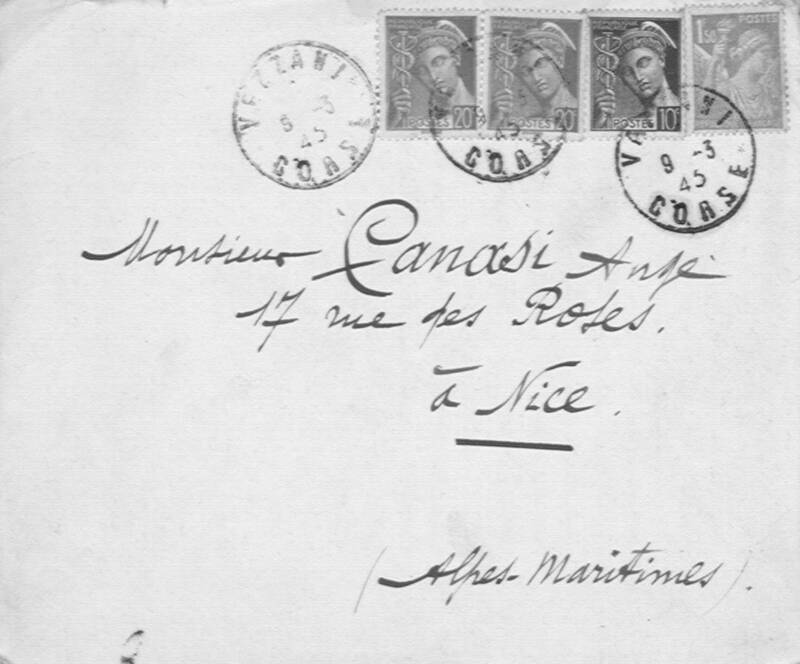 POSTES 20c
POSTES 20c
POSTES 10c
1F50 POSTES
VEZZANI
9 -3
45
CORSE
VEZZANI
45
CORSE
VEZZANI
9 -3
45
CORSE
Monsieur Canasi Ange
17 rue des Roses.
à Nice.
(Alpes-Maritimes).